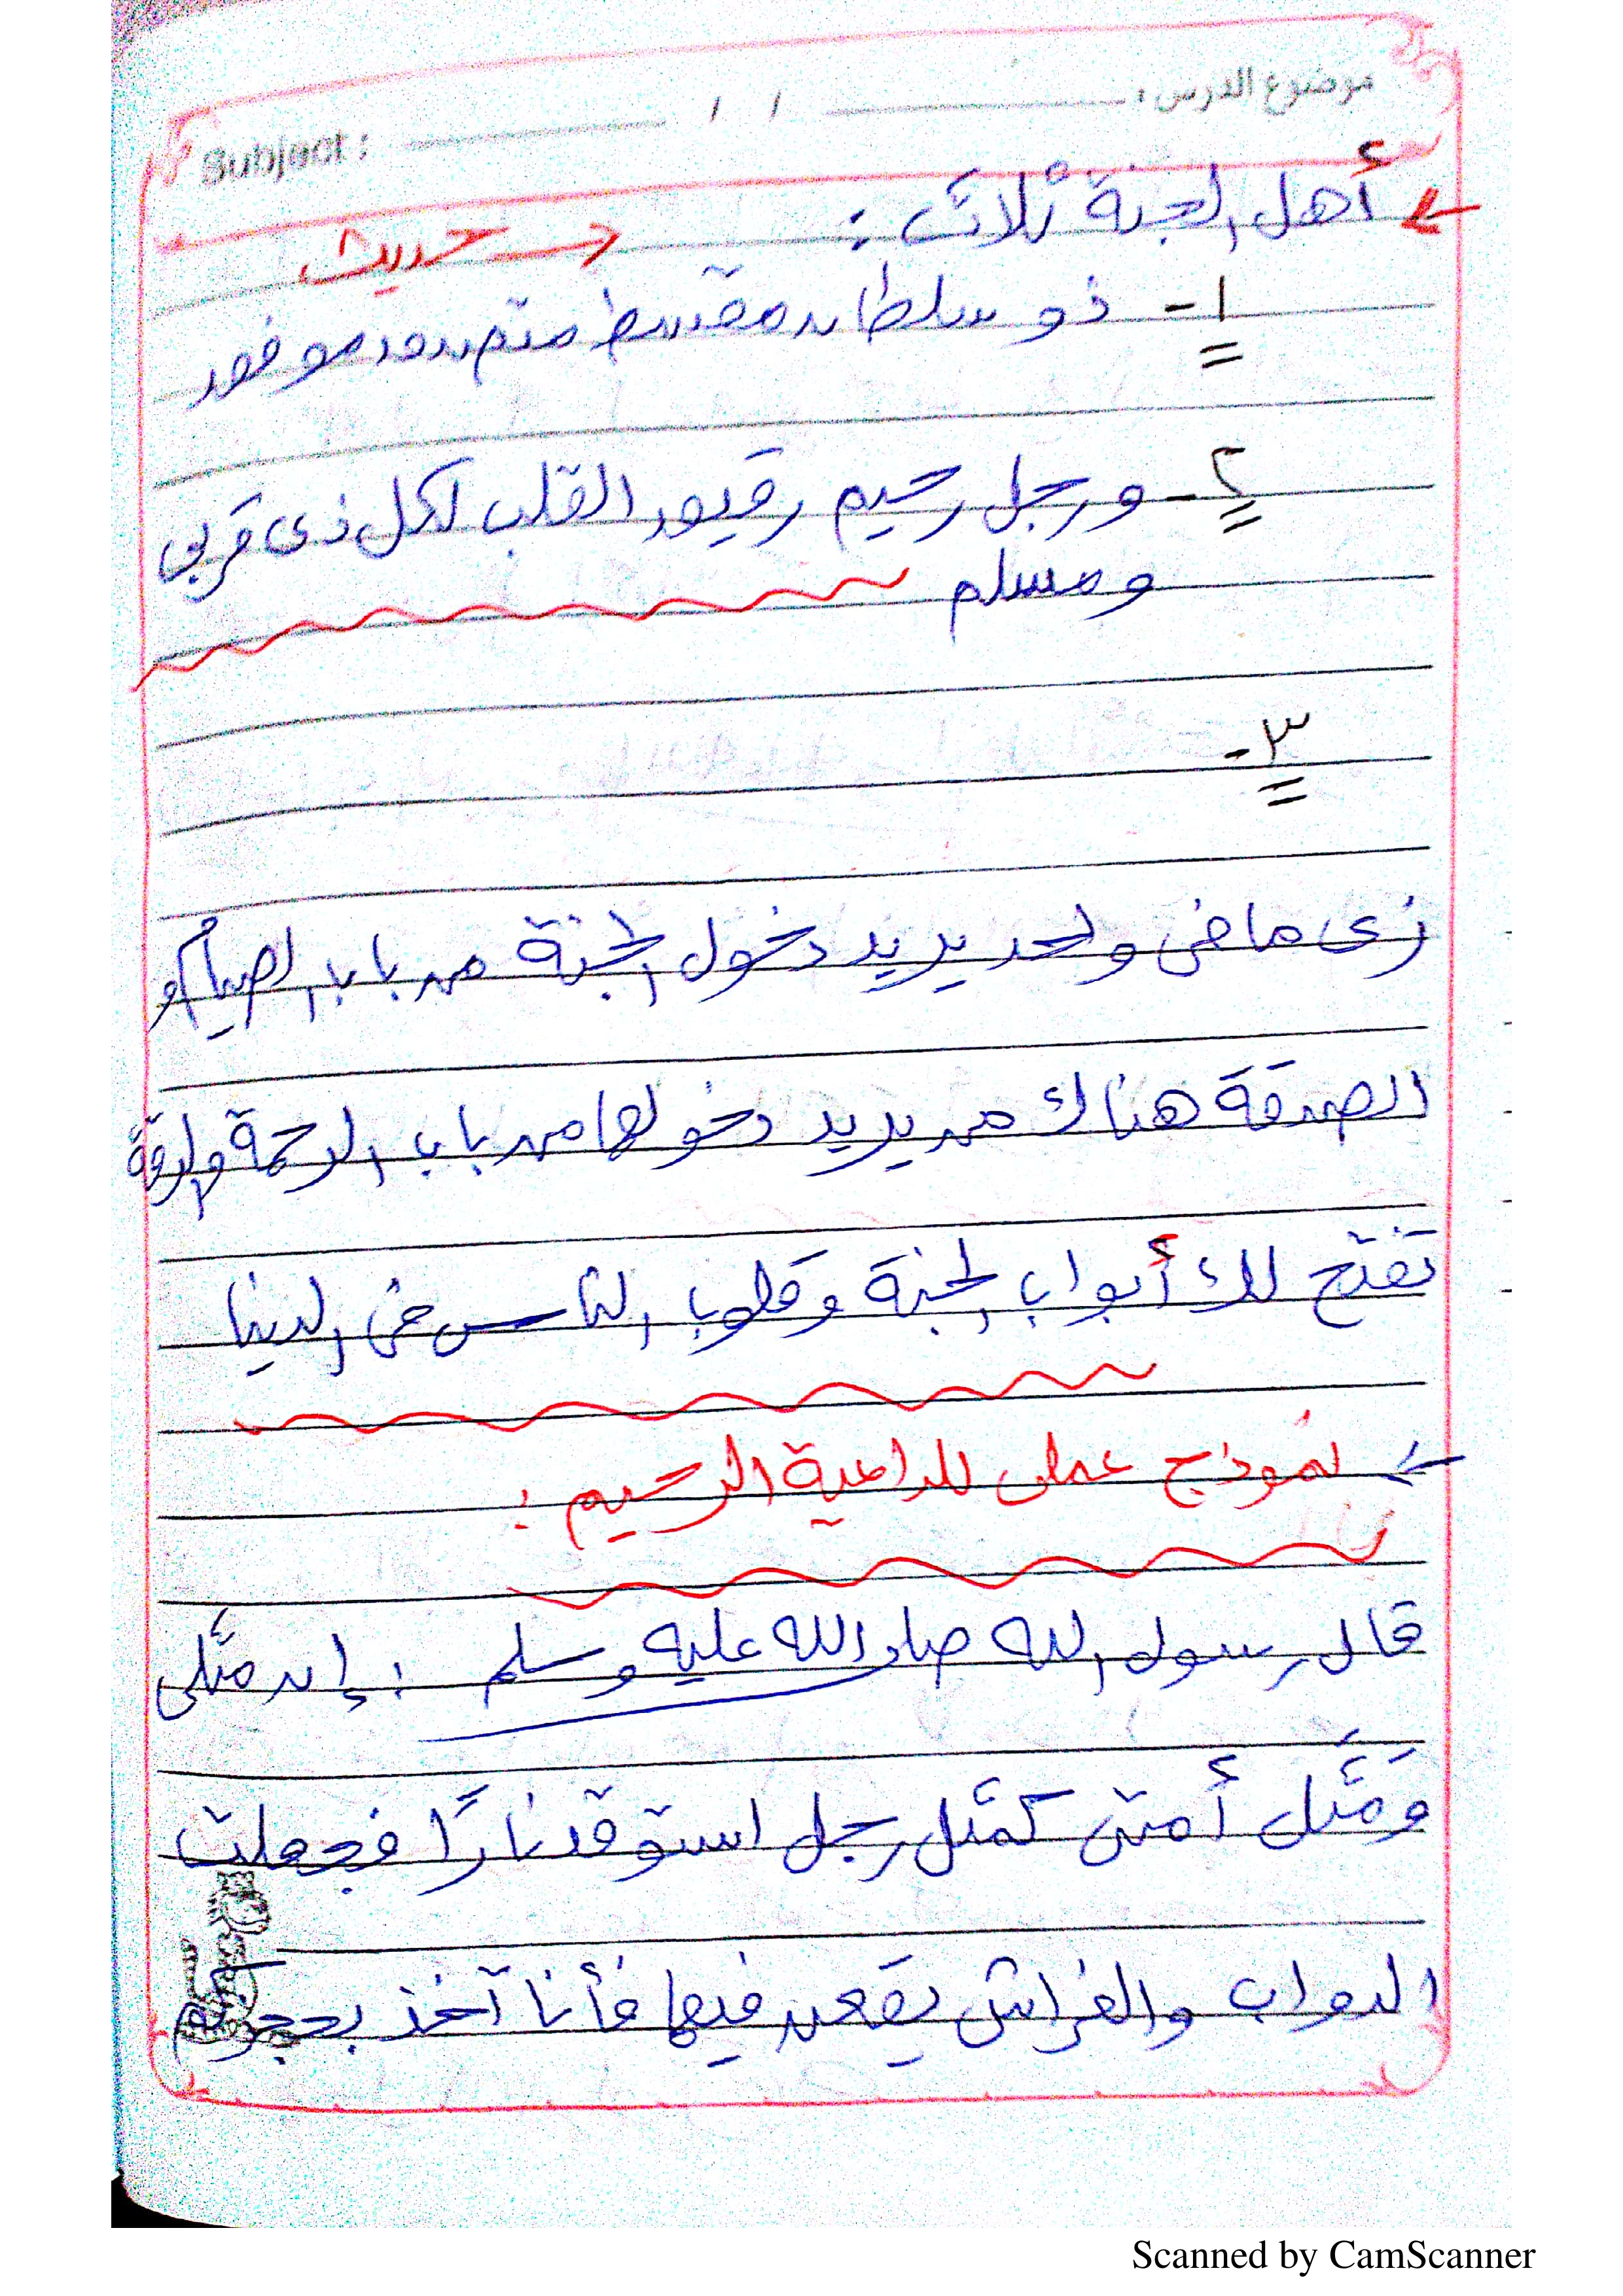 موضوع الدرس : / / Subject :
أهل الجنة ثلاث :
حديث
١- ذو سلطان مقسط متصدق موفق
٢- ورجل رحيم رقيق القلب لكل ذى قربى
ومسلم
٣-
زى ما فى واحد يريد دخول الجنة من باب الصيام أو
الصدقة هناك من يريد دخولها من باب الرحمة والرقة
تفتح لك أبواب الجنة وقلوب الناس فى الدنيا
نموذج عملى للداعية الرحيم :
قال رسول الله صلى الله عليه وسلم : إن مَثَلى
ومَثَل أمتى كمَثَل رجل استوقد نارًا فجعلت
الدواب والفراش يقعن فيها فأنا آخذ بحجزكم
Scanned by CamScanner